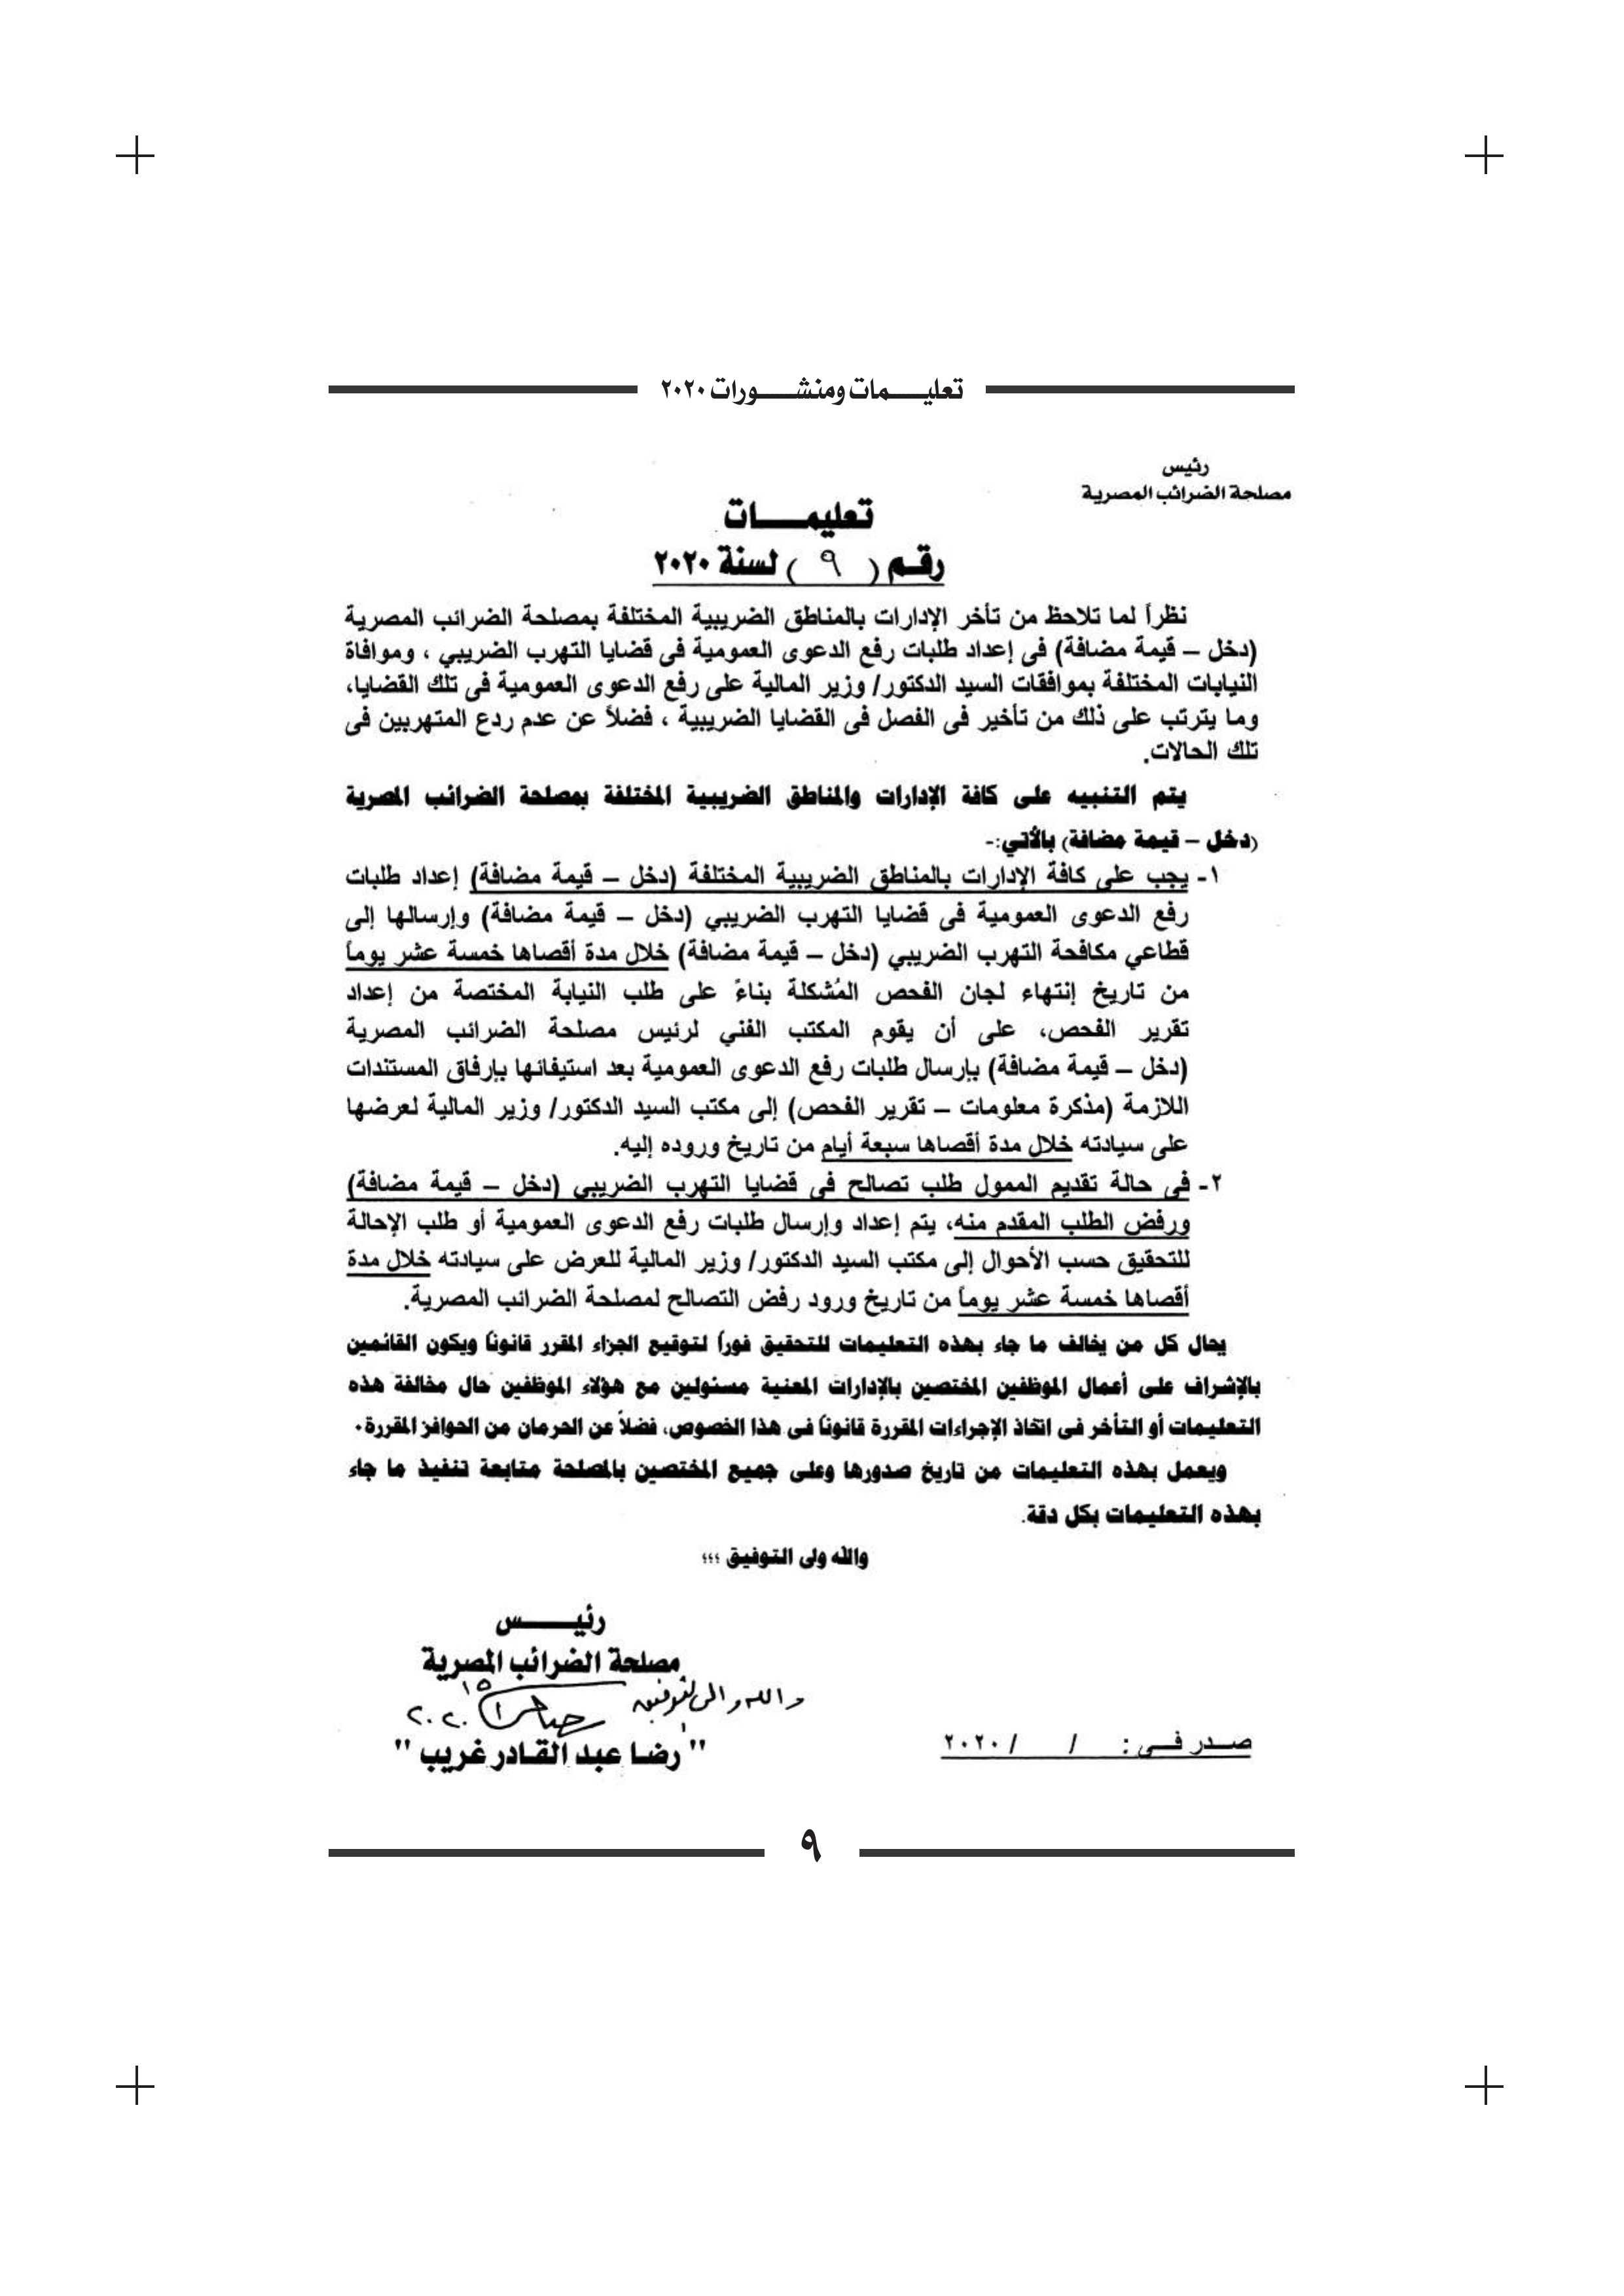 تعليمات ومنشورات ٢٠٢٠
رئيس
مصلحة الضرائب المصرية
تعليمات
رقم ( ٩ ) لسنة ٢٠٢٠
نظراً لما تلاحظ من تأخر الإدارات بالمناطق الضريبية المختلفة بمصلحة الضرائب المصرية
(دخل – قيمة مضافة) فى إعداد طلبات رفع الدعوى العمومية فى قضايا التهرب الضريبي ، وموافاة
النيابات المختلفة بموافقات السيد الدكتور/ وزير المالية على رفع الدعوى العمومية فى تلك القضايا،
وما يترتب على ذلك من تأخير فى الفصل فى القضايا الضريبية ، فضلاً عن عدم ردع المتهربين فى
تلك الحالات.
يتم التنبيه على كافة الإدارات والمناطق الضريبية المختلفة بمصلحة الضرائب المصرية
(دخل – قيمة مضافة) بالأتي:-
١- يجب على كافة الإدارات بالمناطق الضريبية المختلفة (دخل – قيمة مضافة) إعداد طلبات
رفع الدعوى العمومية فى قضايا التهرب الضريبي (دخل – قيمة مضافة) وإرسالها إلى
قطاعي مكافحة التهرب الضريبي (دخل – قيمة مضافة) خلال مدة أقصاها خمسة عشر يوماً
من تاريخ إنتهاء لجان الفحص المُشكلة بناءً على طلب النيابة المختصة من إعداد
تقرير الفحص، على أن يقوم المكتب الفني لرئيس مصلحة الضرائب المصرية
(دخل – قيمة مضافة) بإرسال طلبات رفع الدعوى العمومية بعد استيفائها بإرفاق المستندات
اللازمة (مذكرة معلومات – تقرير الفحص) إلى مكتب السيد الدكتور/ وزير المالية لعرضها
على سيادته خلال مدة أقصاها سبعة أيام من تاريخ وروده إليه.
٢- فى حالة تقديم الممول طلب تصالح فى قضايا التهرب الضريبي (دخل – قيمة مضافة)
ورفض الطلب المقدم منه، يتم إعداد وإرسال طلبات رفع الدعوى العمومية أو طلب الإحالة
للتحقيق حسب الأحوال إلى مكتب السيد الدكتور/ وزير المالية للعرض على سيادته خلال مدة
أقصاها خمسة عشر يوماً من تاريخ ورود رفض التصالح لمصلحة الضرائب المصرية.
يحال كل من يخالف ما جاء بهذه التعليمات للتحقيق فوراً لتوقيع الجزاء المقرر قانوناً ويكون القائمين
بالإشراف على أعمال الموظفين المختصين بالإدارات المعنية مسئولين مع هؤلاء الموظفين حال مخالفة هذه
التعليمات أو التأخر فى اتخاذ الإجراءات المقررة قانوناً فى هذا الخصوص، فضلاً عن الحرمان من الحوافز المقررة.
ويعمل بهذه التعليمات من تاريخ صدورها وعلى جميع المختصين بالمصلحة متابعة تنفيذ ما جاء
بهذه التعليمات بكل دقة.
والله ولى التوفيق ؛؛؛
رئيس
مصلحة الضرائب المصرية
والله ولى التوفيق
٢٠٢٠
" رضا عبد القادر غريب "
صدر فى : / / ٢٠٢٠
٩